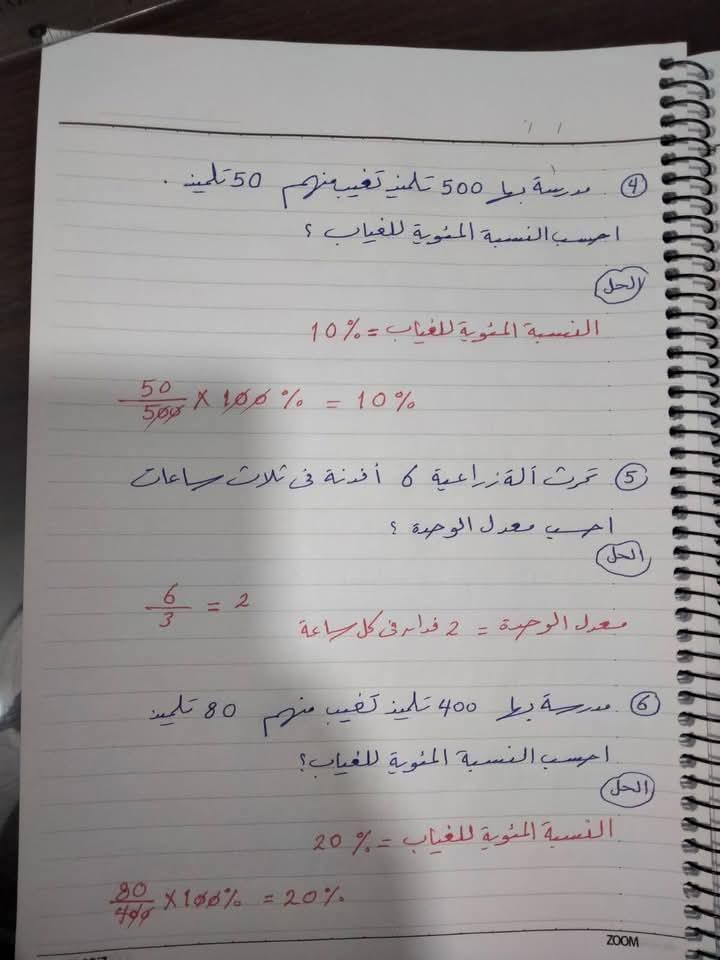 ④ مدرسة بها 500 تلميذ تغيب منهم 50 تلميذ.
احسب النسبة المئوية للغياب ؟
الحل
النسبة المئوية للغياب = 10%
50/500 × 100 % = 10 %
⑤ تحرث آلة زراعية 6 أفدنة فى ثلاث ساعات
احسب معدل الوحدة ؟
الحل
6/3 = 2
معدل الوحدة = 2 فدان فى كل ساعة
⑥ مدرسة بها 400 تلميذ تغيب منهم 80 تلميذ
احسب النسبة المئوية للغياب؟
الحل
النسبة المئوية للغياب = 20 %
80/400 × 100% = 20%
ZOOM